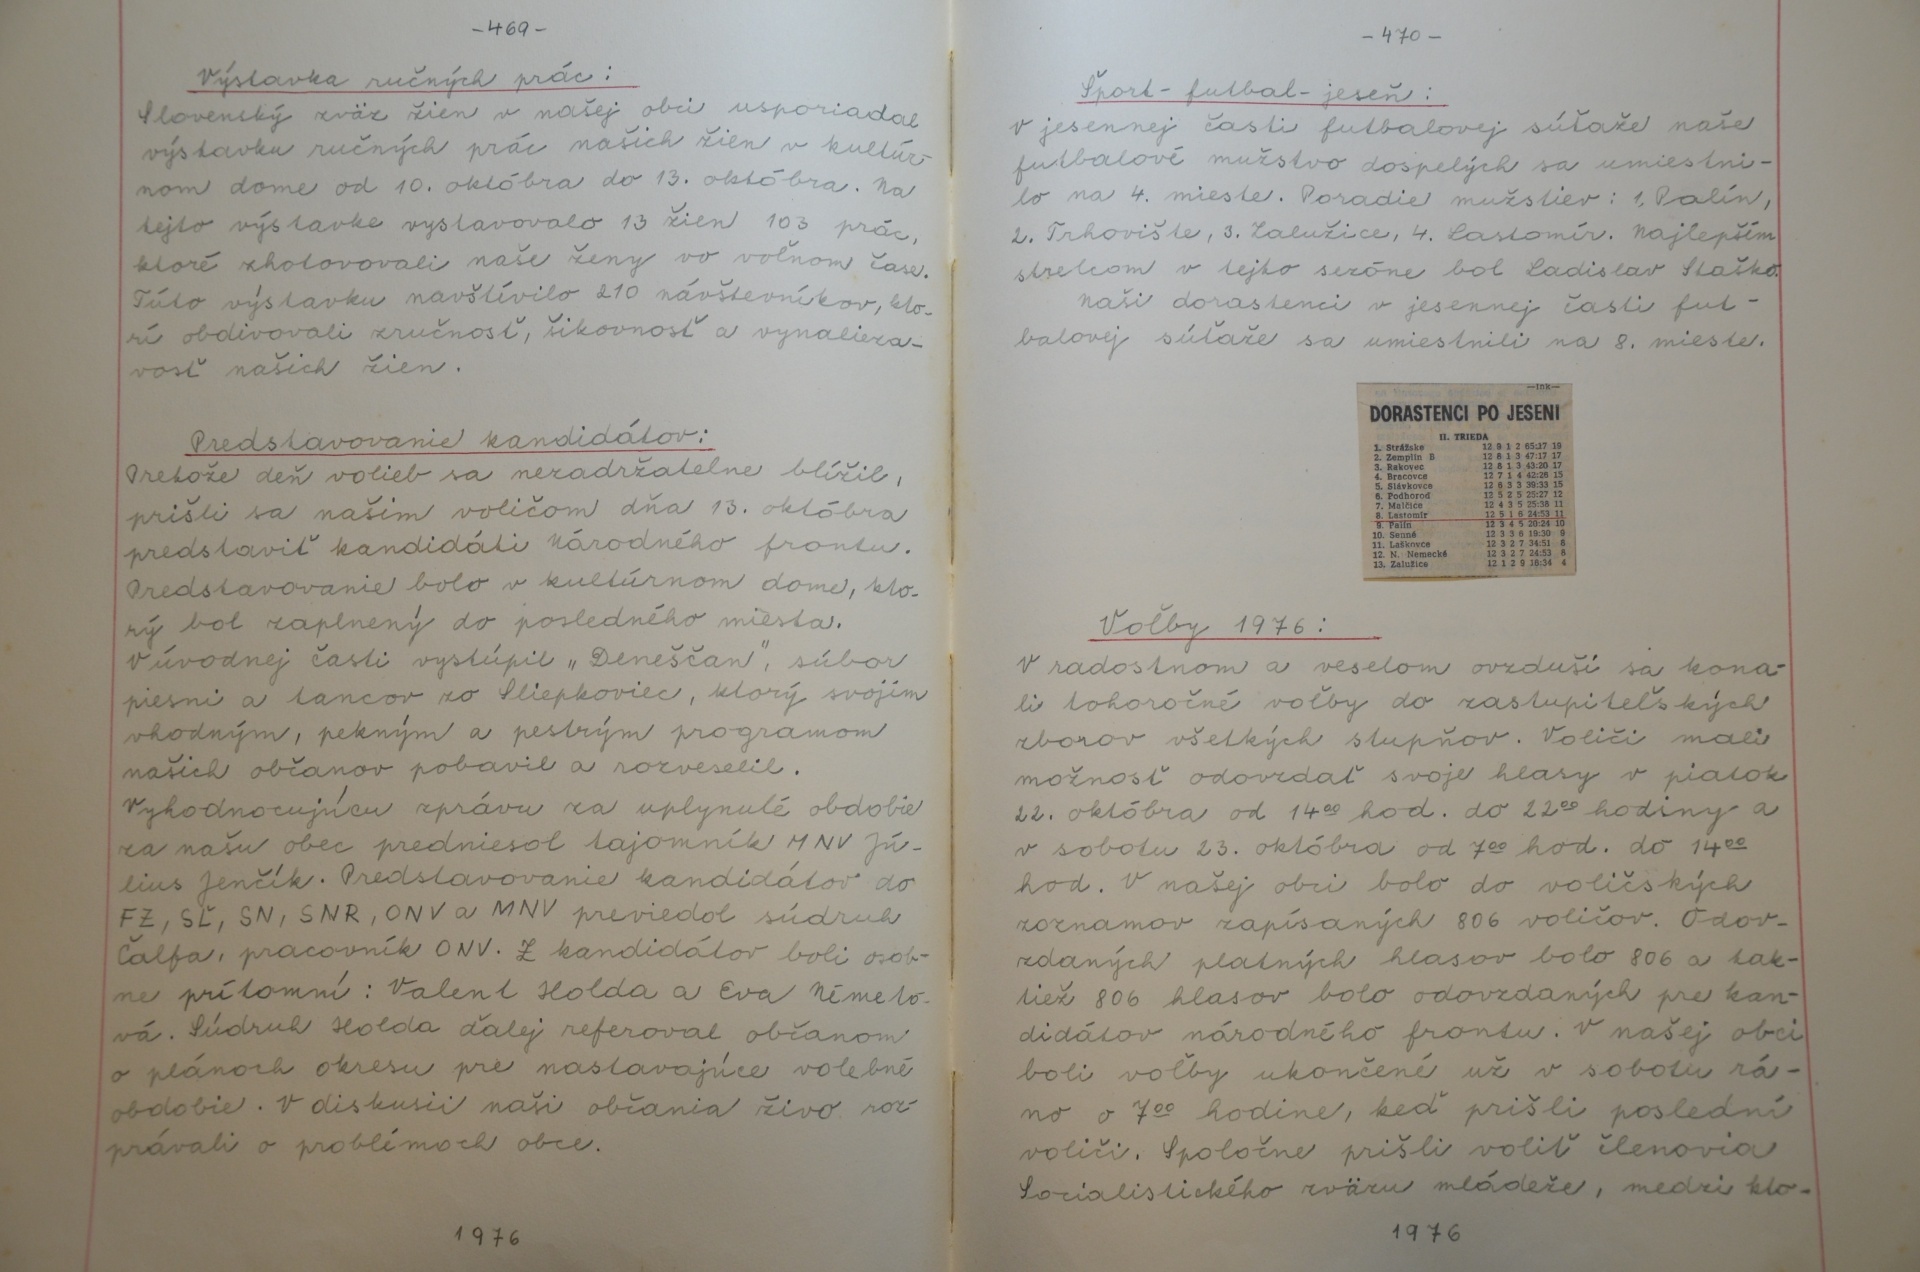 -469-
Výstavka ručných prác:
Slovenský zväz žien v našej obci usporiadal
výstavku ručných prác našich žien v kultúr-
nom dome od 10. októbra do 13. októbra. Na
tejto výstavke vystavovalo 13 žien 103 prác,
ktoré zhotovovali naše ženy vo voľnom čase.
Túto výstavku navštívilo 210 návštevníkov, kto-
rí obdivovali zručnosť, šikovnosť a vynalieza-
vosť našich žien.
Predstavovanie kandidátov:
Pretože deň volieb sa nezadržatelne blížil,
prišli sa našim voličom dňa 13. októbra
predstaviť kandidáti Národného frontu.
Predstavovanie bolo v kultúrnom dome, kto-
rý bol zaplnený do posledného miesta.
V úvodnej časti vystúpil „Deneščan", súbor
piesni a tancov zo Sliepkoviec, ktorý svojím
vhodným, pekným a pestrým programom
našich občanov pobavil a rozveselil.
Vyhodnocujúcu zprávu za uplynulé obdobie
za našu obec predniesol tajomník MNV Jú-
lius Jenčík. Predstavovanie kandidátov do
FZ, SĽ, SN, SNR, ONV a MNV previedol súdruh
Čalfa, pracovník ONV. Z kandidátov boli osob-
ne prítomní: Valent Holda a Eva Németo-
vá. Súdruh Holda ďalej referoval občanom
o plánoch okresu pre nastavajúce volebné
obdobie. V diskusii naši občania živo roz-
právali o problémoch obce.
1976
-470-
Šport-futbal-jeseň:
V jesennej časti futbalovej súťaže naše
futbalové mužstvo dospelých sa umiestni-
lo na 4. mieste. Poradie mužstiev: 1. Palín,
2. Trhovište, 3. Zalužice, 4. Lastomír. Najlepším
strelcom v tejto sezóne bol Ladislav Staško.
Naši dorastenci v jesennej časti fut-
balovej súťaže sa umiestnili na 8. mieste.
—Ink—
DORASTENCI PO JESENI
II. TRIEDA
1. Strážske 12 9 1 2 65:27 19
2. Zemplín B 12 8 1 3 47:17 17
3. Rakovec 12 8 1 3 43:20 17
4. Bracovce 12 7 1 4 42:26 15
5. Slávkovce 12 6 3 3 39:33 15
6. Podhoroď 12 5 2 5 25:27 12
7. Malčice 12 4 3 5 25:38 11
8. Lastomír 12 5 1 6 24:53 11
9. Palín 12 3 4 5 20:24 10
10. Senné 12 3 3 6 19:30 9
11. Laškovce 12 3 2 7 34:51 8
12. N. Nemecké 12 3 2 7 24:53 8
13. Zalužice 12 1 2 9 16:34 4
Voľby 1976:
V radostnom a veselom ovzduší sa kona-
li tohoročné voľby do zastupiteľských
zborov všetkých stupňov. Voliči mali
možnosť odovzdať svoje hlasy v piatok
22. októbra od 14⁰⁰ hod. do 22⁰⁰ hodiny a
v sobotu 23. októbra od 7⁰⁰ hod. do 14⁰⁰
hod. V našej obci bolo do voličských
zoznamov zapísaných 806 voličov. Odov-
zdaných platných hlasov bolo 806 a tak-
tiež 806 hlasov bolo odovzdaných pre kan-
didátov národného frontu. V našej obci
boli voľby ukončené už v sobotu rá-
no o 7⁰⁰ hodine, keď prišli poslední
voliči. Spoločne prišli voliť členovia
Socialistického zväzu mládeže, medzi kto-
1976